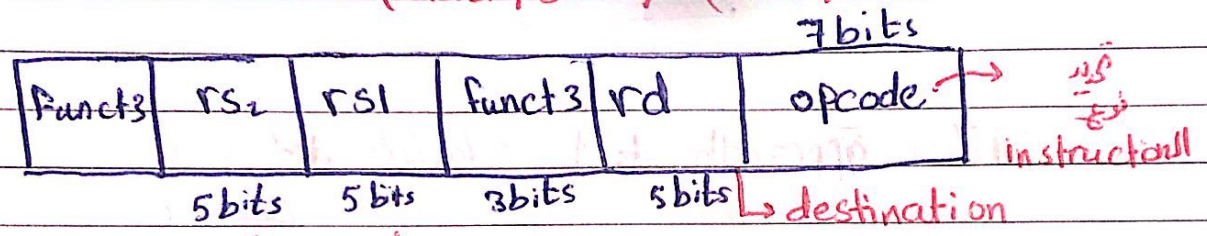 7 bits
Funct3 rs2 rs1 funct3 rd opcode → نوع
instructionال
5 bits 5 bits 3 bits 5 bits ↳ destination